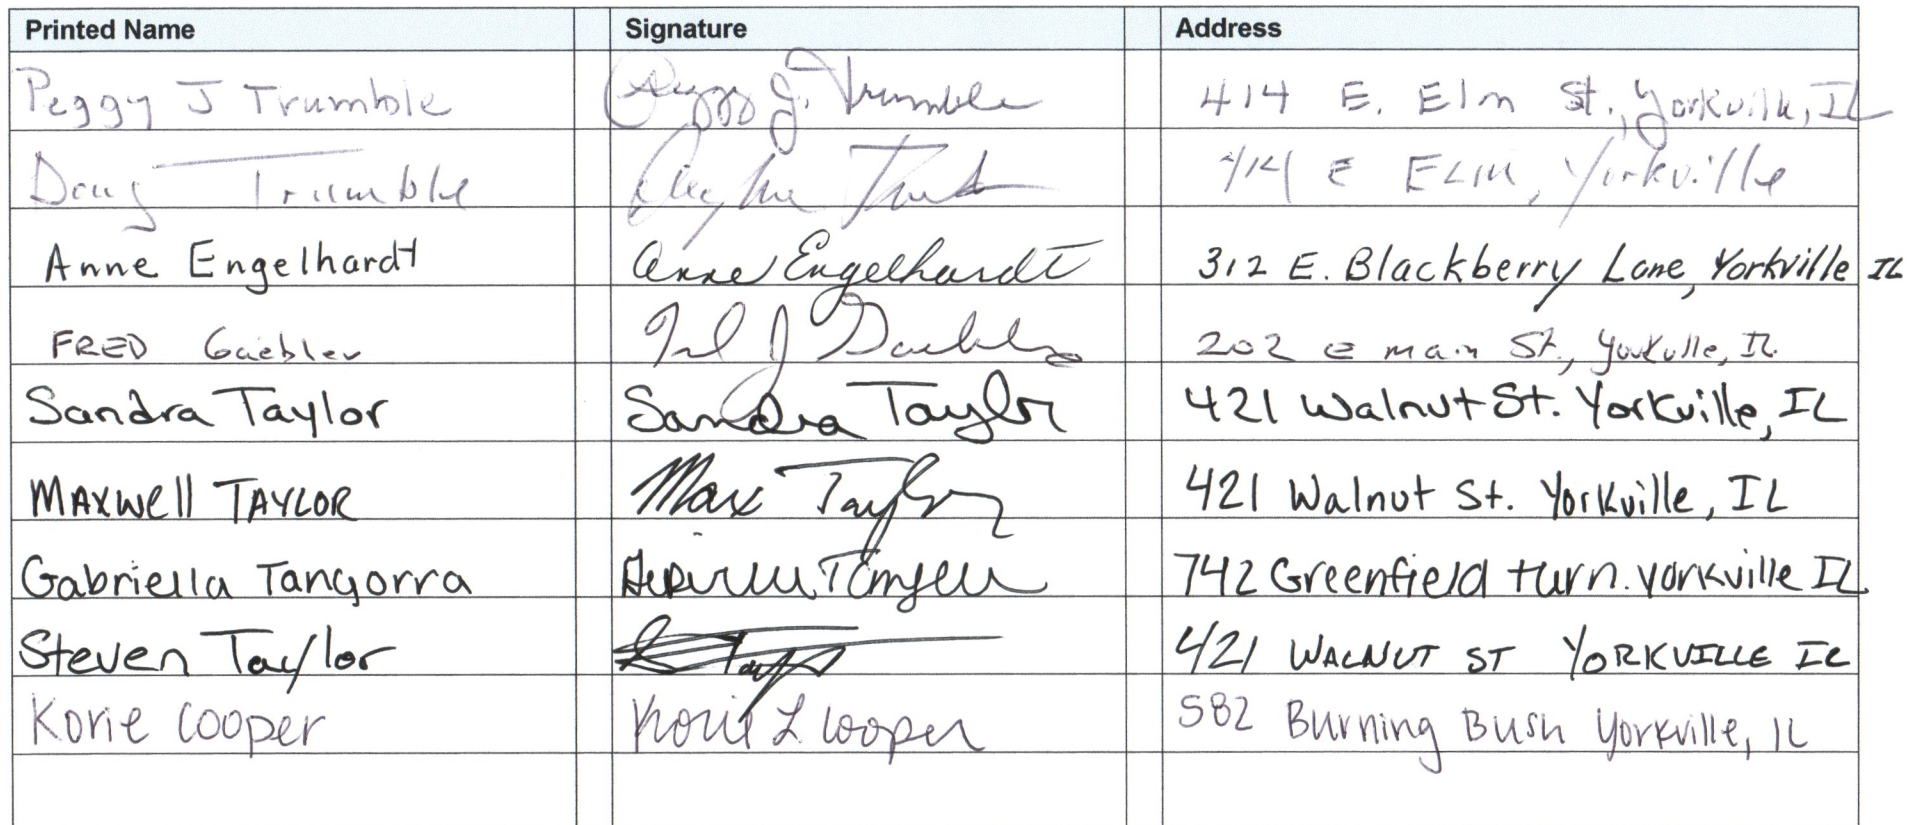 Printed Name Signature Address
Peggy J Trumble Peggy J. Trumble 414 E. Elm St., Yorkville, IL
Doug Trumble 414 E ELM, Yorkville
Anne Engelhardt Anne Engelhardt 312 E. Blackberry Lane, Yorkville IL
FRED Gaebler Fred J Gaebler 202 E main St., Yorkville, IL
Sandra Taylor Sandra Taylor 421 Walnut St. Yorkville, IL
MAXWell TAYLOR Max Taylor 421 Walnut St. Yorkville, IL
Gabriella Tangorra 742 Greenfield turn. yorkville IL
Steven Taylor 421 WALNUT ST YORKVILLE IL
Korie Cooper Korie L Cooper 582 Burning Bush Yorkville, IL